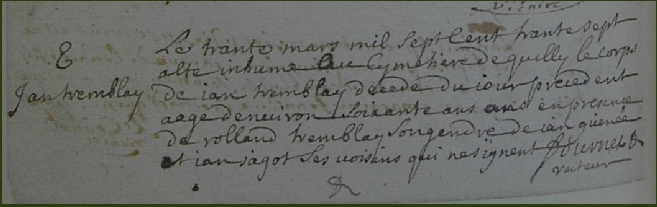 E
Jan tremblay
Le trante mars mil sept Cent trante sept
a Ete inhume Au Cymetiere de quilly le corps
de ian tremblay decede du iour precedent
aage denviron soixante ans en presence
de rolland tremblay son gendre de ian
et ian sagot ses voisins qui ne signent
recteur